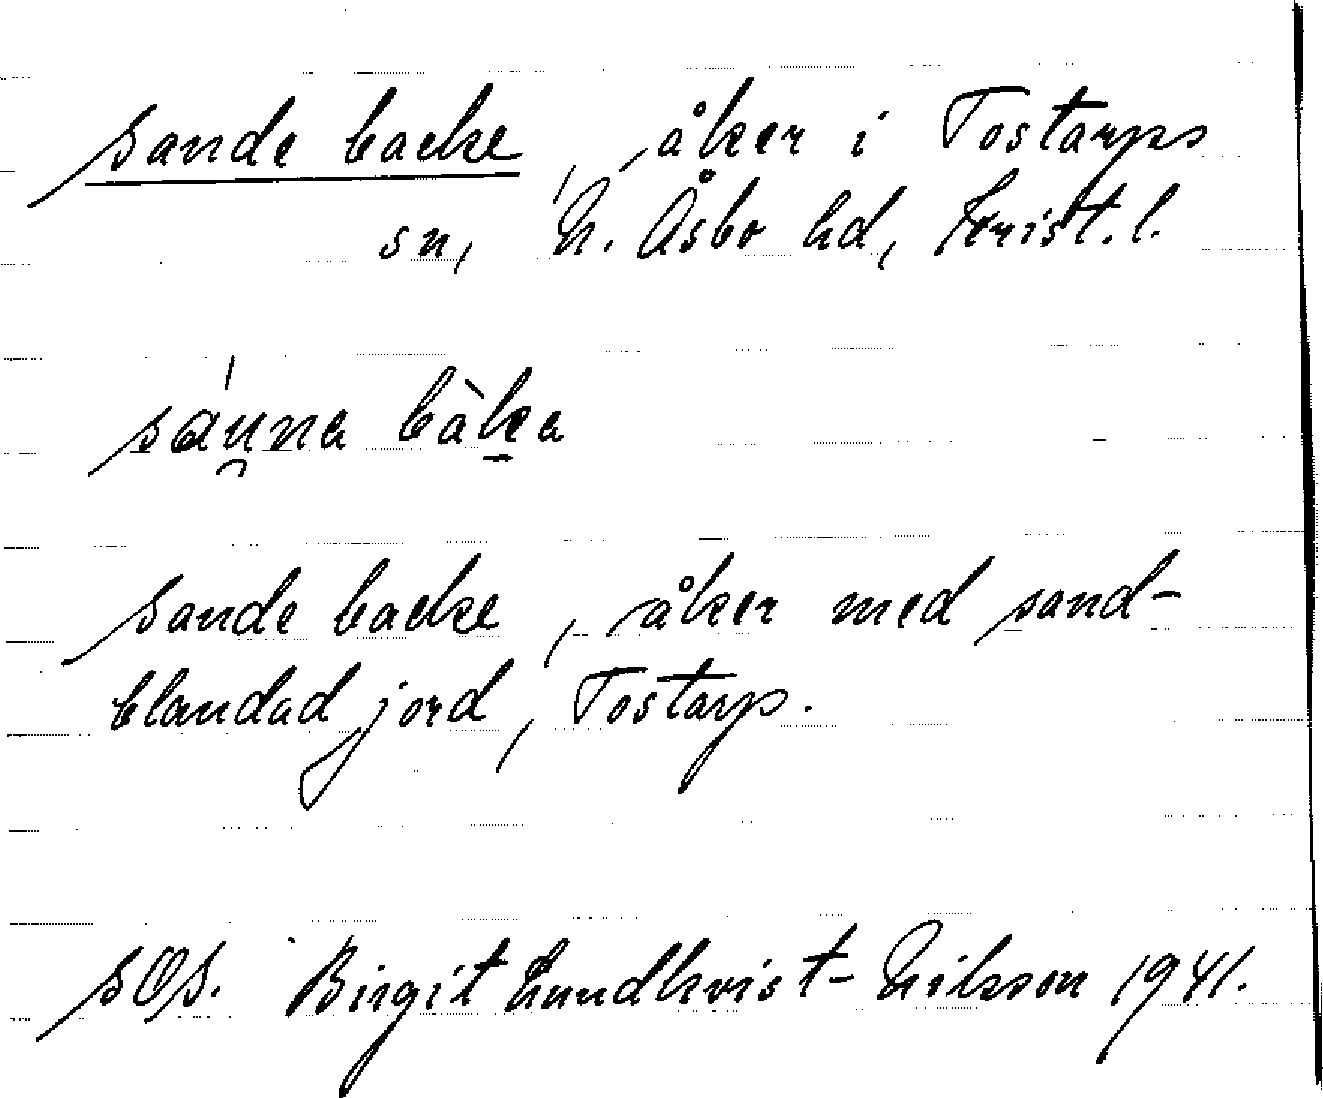 Sande backe, åker i Tostarps
sn, N. Åsbo hd, Krist. l.
sánna bàka
Sande backe, åker med sand-
blandad jord, Tostarp.
SOS. Birgit Lundkvist-Nilsson 1941.